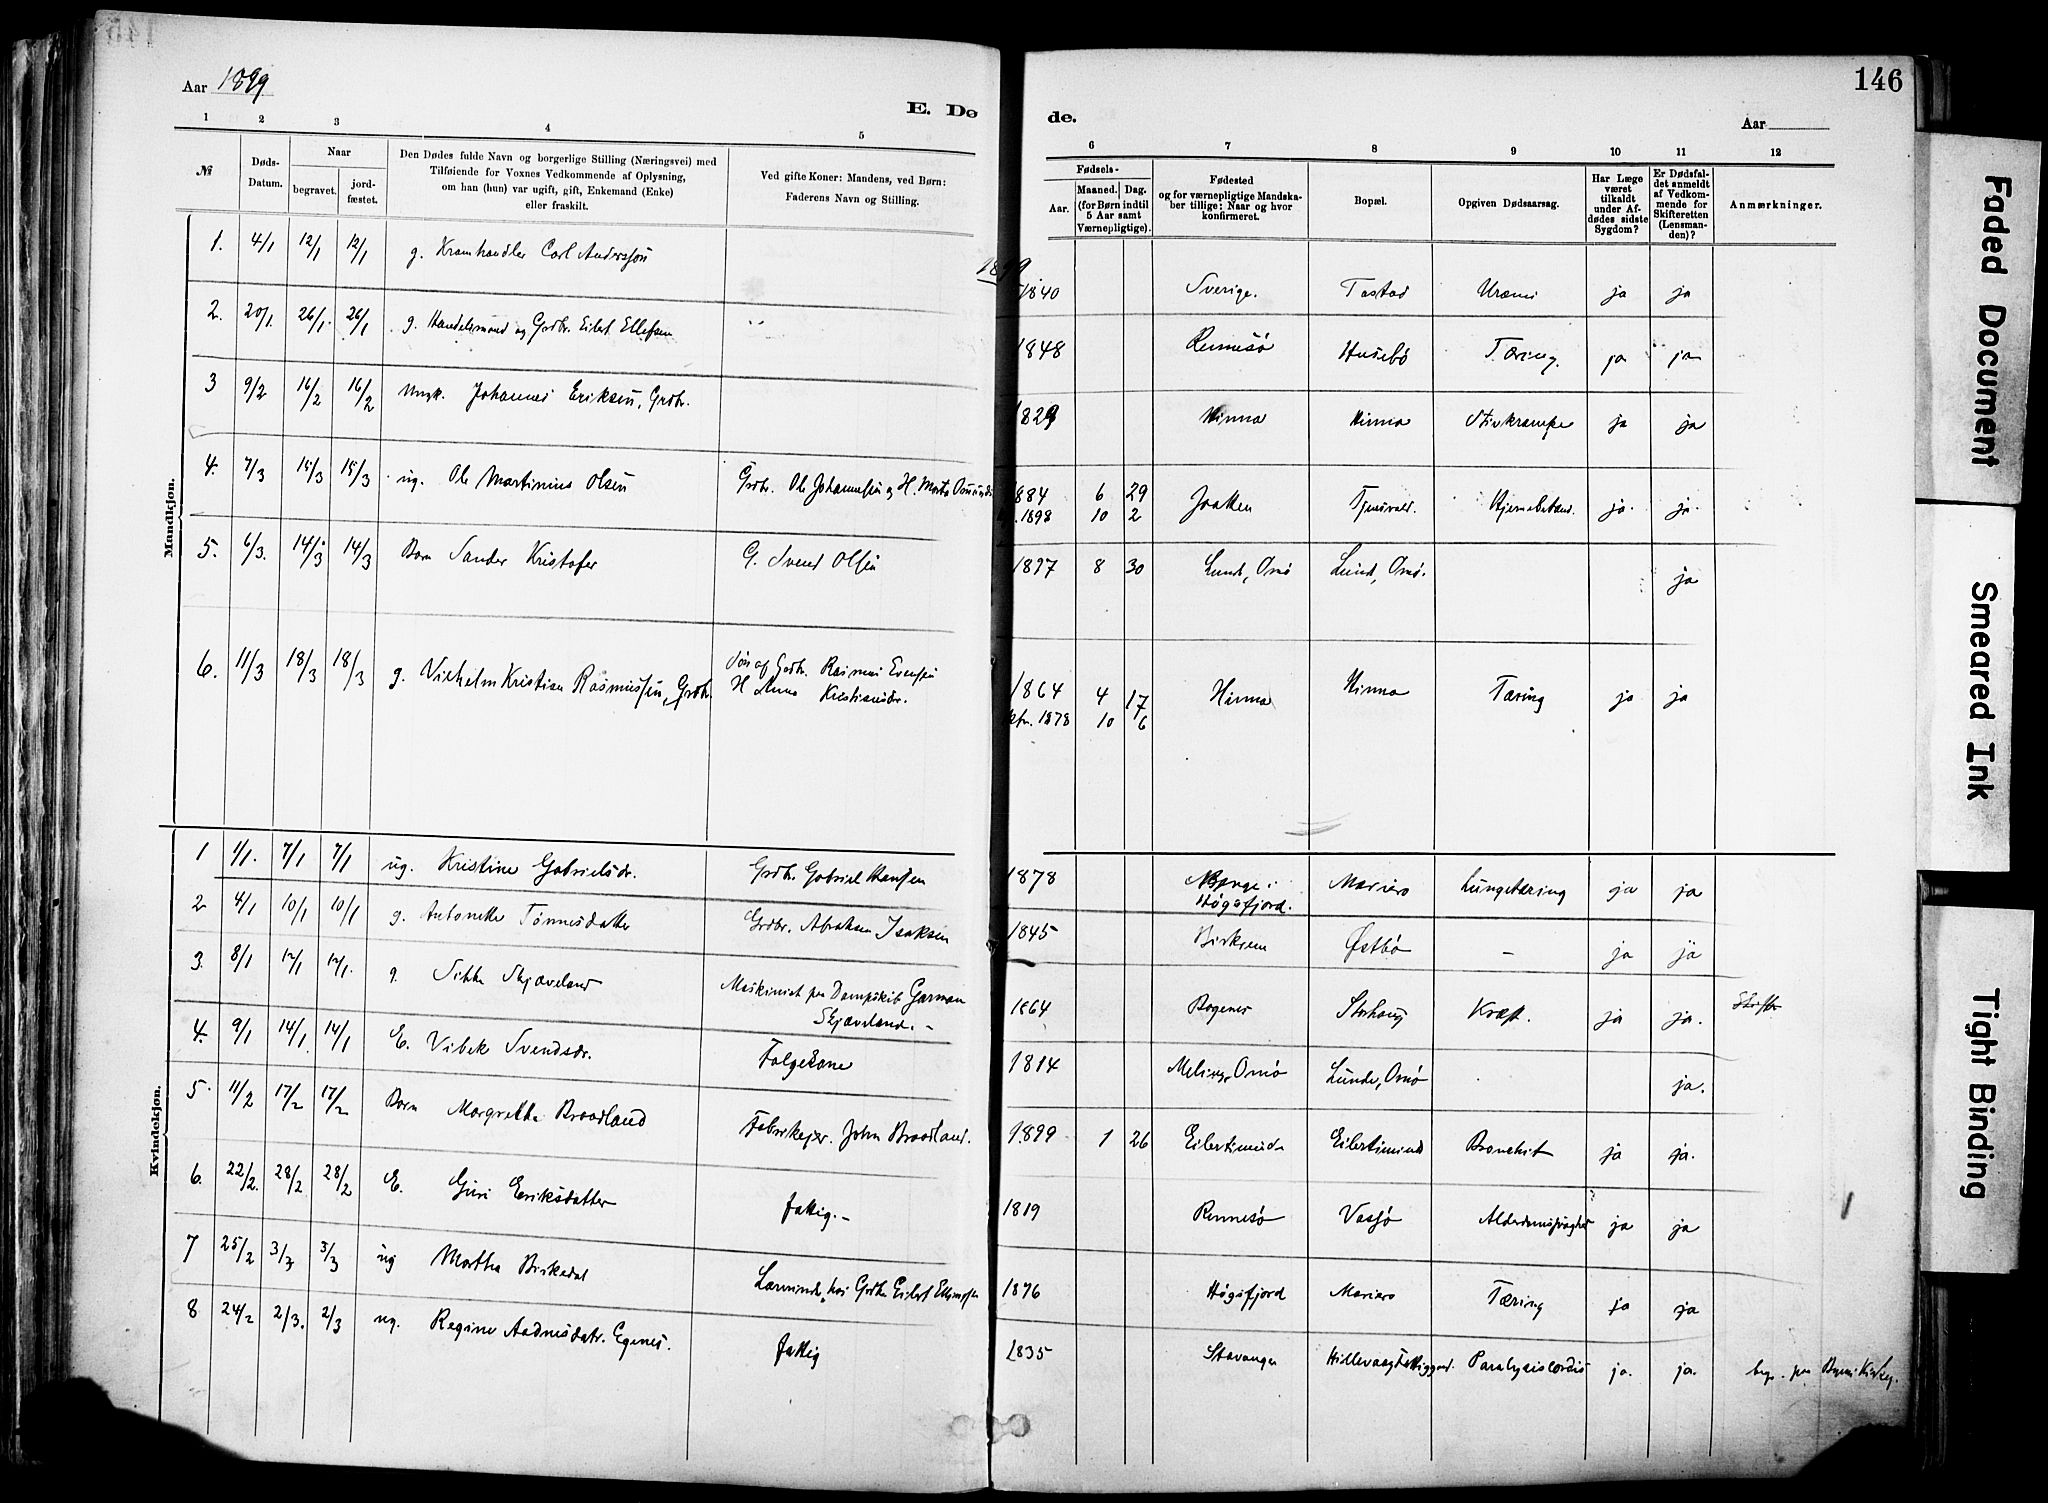 Aar 1899
E. Dø
1 2 3 4 5
№
Døds-Datum.
Naar
begravet.
jord-fæstet.
Den Dødes fulde Navn og borgerlige Stilling (Næringsvei) med
Tilføiende for Voxnes Vedkommende af Oplysning,
om han (hun) var ugift, gift, Enkemand (Enke)
eller fraskilt.
Ved gifte Koner: Mandens, ved Børn:
Faderens Navn og Stilling.
Mandkjøn.
1. 4/1 12/1 12/1 g. Kramhandler Carl Anderssøn
2. 20/1. 26/1. 26/1 g. Handelsmand og Grdbr. Eilert Ellefsen
3 9/2 16/2 16/2 Johannes Eriksen, Grdbr.
4. 7/3 15/3 15/3 ug. Ole Martinius Olsen Grdbr. Ole Johannessen og H. Marta
5. 6/3. 14/3 14/3 Barn Sander Kristofer G. Svend Olsen
6. 11/3 18/3 18/3 g. Vilhelm Kristian Rasmussen, Grdbr. Søn af Grdbr. Rasmus Evensen
H. Anna Kristiansdr.
Kvindekjøn.
1 1/1. 7/1 7/1 ug. Kristine Gabrielsdr. Grdbr. Gabriel Hansen
2 4/1 10/1 10/1 g. Antonette Tønnesdatter Grdbr. Abraham Isaksen
3. 8/1 12/1 12/1. g. Sikke Skjæveland Maskinist paa Dampskib Garman
Skjæveland. -
4. 9/1 14/1. 14/1 E. Vibeke Svendsdr. Folgekone
5. 11/2 17/2 17/2 Barn Margrethe Braadland Fabrikejer. John Braadland.
6. 22/2. 28/2 28/2 E. Guri Eriksdatter fattig. -
7 25/2 3/3 3/3 ug Martha Birkedal hos Grdbr. Eilert
8 24/2 2/3. 2/3 ug. Regine Aadnesdatr. Egenes. fattig
146
de.
Aar
6 7 8 9 10 11 12
Fødsels-
Aar.
Maaned. Dag.
(for Børn indtil
5 Aar samt
Værnepligtige).
Fødested
og for værnepligtige Mandska-
ber tillige: Naar og hvor
konfirmeret.
Bopæl.
Opgiven Dødsaarsag.
Har Læge
været
tilkaldt
under Af-
dødes sidste
Sygdom?
Er Dødsfal-
det anmeldt
af Vedkom-
mende for
Skifteretten
(Lensman-
den)?
Anmærkninger.
1899
1840 Sverige. Tastad Uræmi ja ja
1848 Rennesø Husebø Tæring. ja ja
1829 Hinna Hinna Stivkrampe ja ja
1884 6 29 Jaatten Tjensvold. ja. ja.
1898 10 2
1897 8 30 Lund, Omø Lund, Omø. ja
1864 4 17 Hinna Hinna Tæring ja ja
1878 10 6
1878 Høgsfjord. Mariero Lungetæring ja ja
1845 Birkrem Østbø - ja ja
1864 Bogenes Storhaug Kræft. ja ja.
1814 Meling, Omø Lunde, Omø ja.
1899 1 26 Eilertsminde Eilertsminde Bronchit ja ja.
1819 Rennesø Vassø Alderdomssvaghed ja ja
1876 Høgsfjord Mariero Tæring ja ja
1835 Stavanger Paralysis cordis ja. ja. begr. paa Byens Kirkeg.
Faded Document
Smeared Ink
Tight Binding